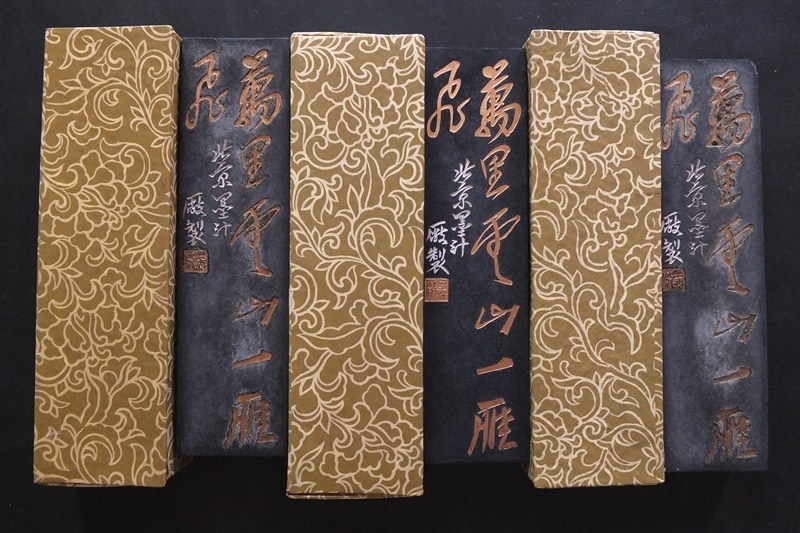 萬里雲山一雁
飛
北京墨汁
廠製
萬里雲山一雁
飛
北京墨汁
廠製
萬里雲山一雁
飛
北京墨汁
廠製